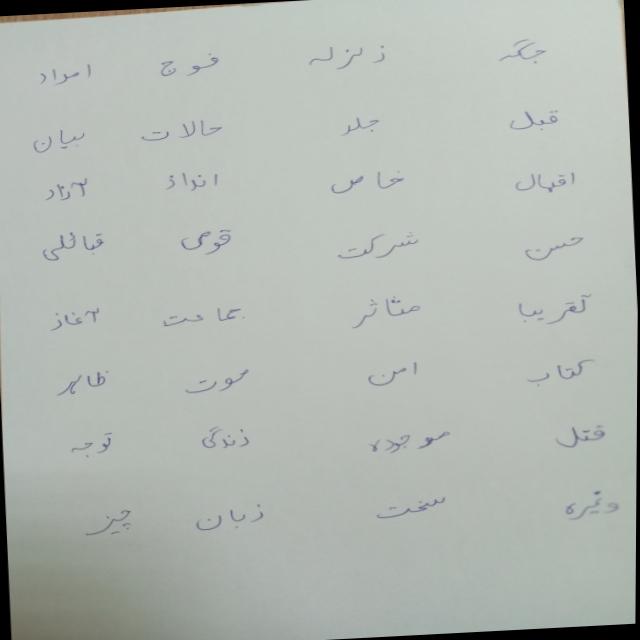 جگہ زلزلہ فوج امداد
قبل جلد حالات بیان
افعال خاص انداز آزاد
حسن شرکت قومی قبائلی
تقریبا متاثر جماعت آغاز
کتاب امن موت ظاہر
قتل موجودہ زندگی توجہ
وغیرہ سخت زبان چیز